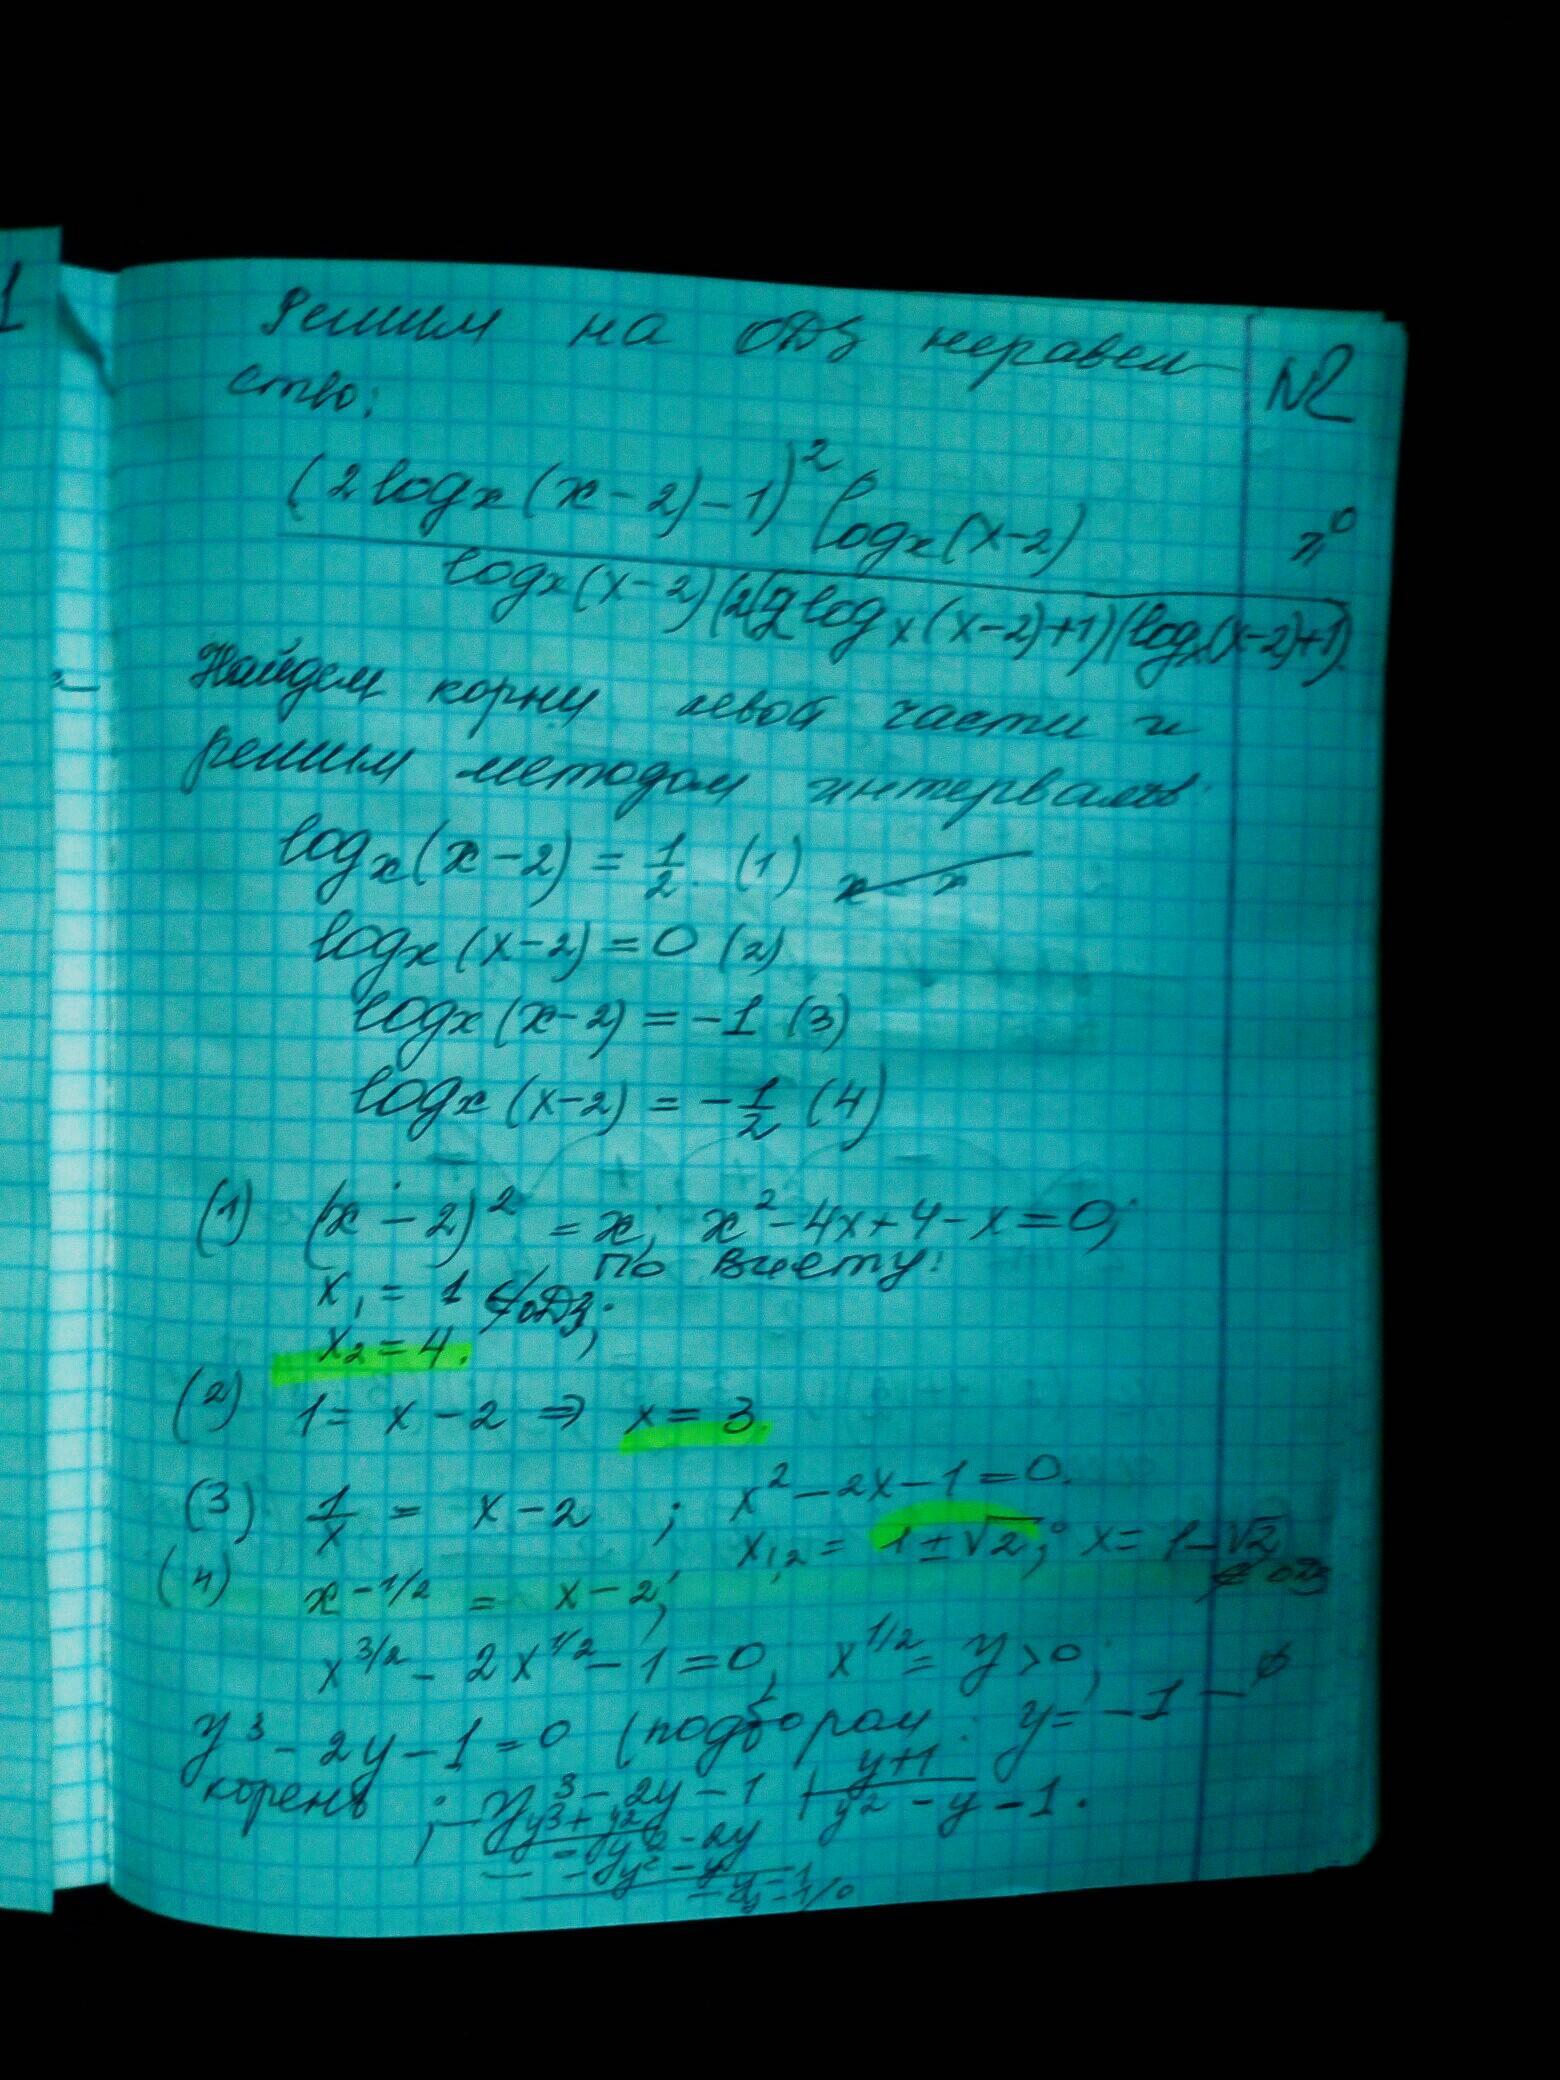 1
Решим на ОДЗ неравен-
№2
ство:
(2log_x(x-2)-1)^2 log_x(x-2)
log_x(x-2)(2log_x(x-2)+1)(log_x(x-2)+1)
Найдем корни левой части и
решим методом интервалов:
log_x(x-2) = 1/2. (1)
log_x(x-2) = 0 (2)
log_x(x-2) = -1 (3)
log_x(x-2) = -1/2 (4)
(1) (x-2)^2 = x; x^2-4x+4-x=0;
по Виету:
x_1 = 1 ∉ ОДЗ;
x_2 = 4.
(2) 1 = x-2 ⇒ x = 3.
(3) 1/x = x-2 ; x^2-2x-1=0.
x_1,2 = 1±√2; x = 1-√2
∉ ОДЗ
(4) x^-1/2 = x-2;
x^3/2 - 2x^1/2 - 1 = 0, x^1/2 = y > 0;
y^3 - 2y - 1 = 0 (подбором: y = -1 -
корень ; y^3 - 2y - 1 | y+1
y^3 + y^2 y^2 - y - 1.
- y^2 - 2y
- y^2 - y
- y - 1